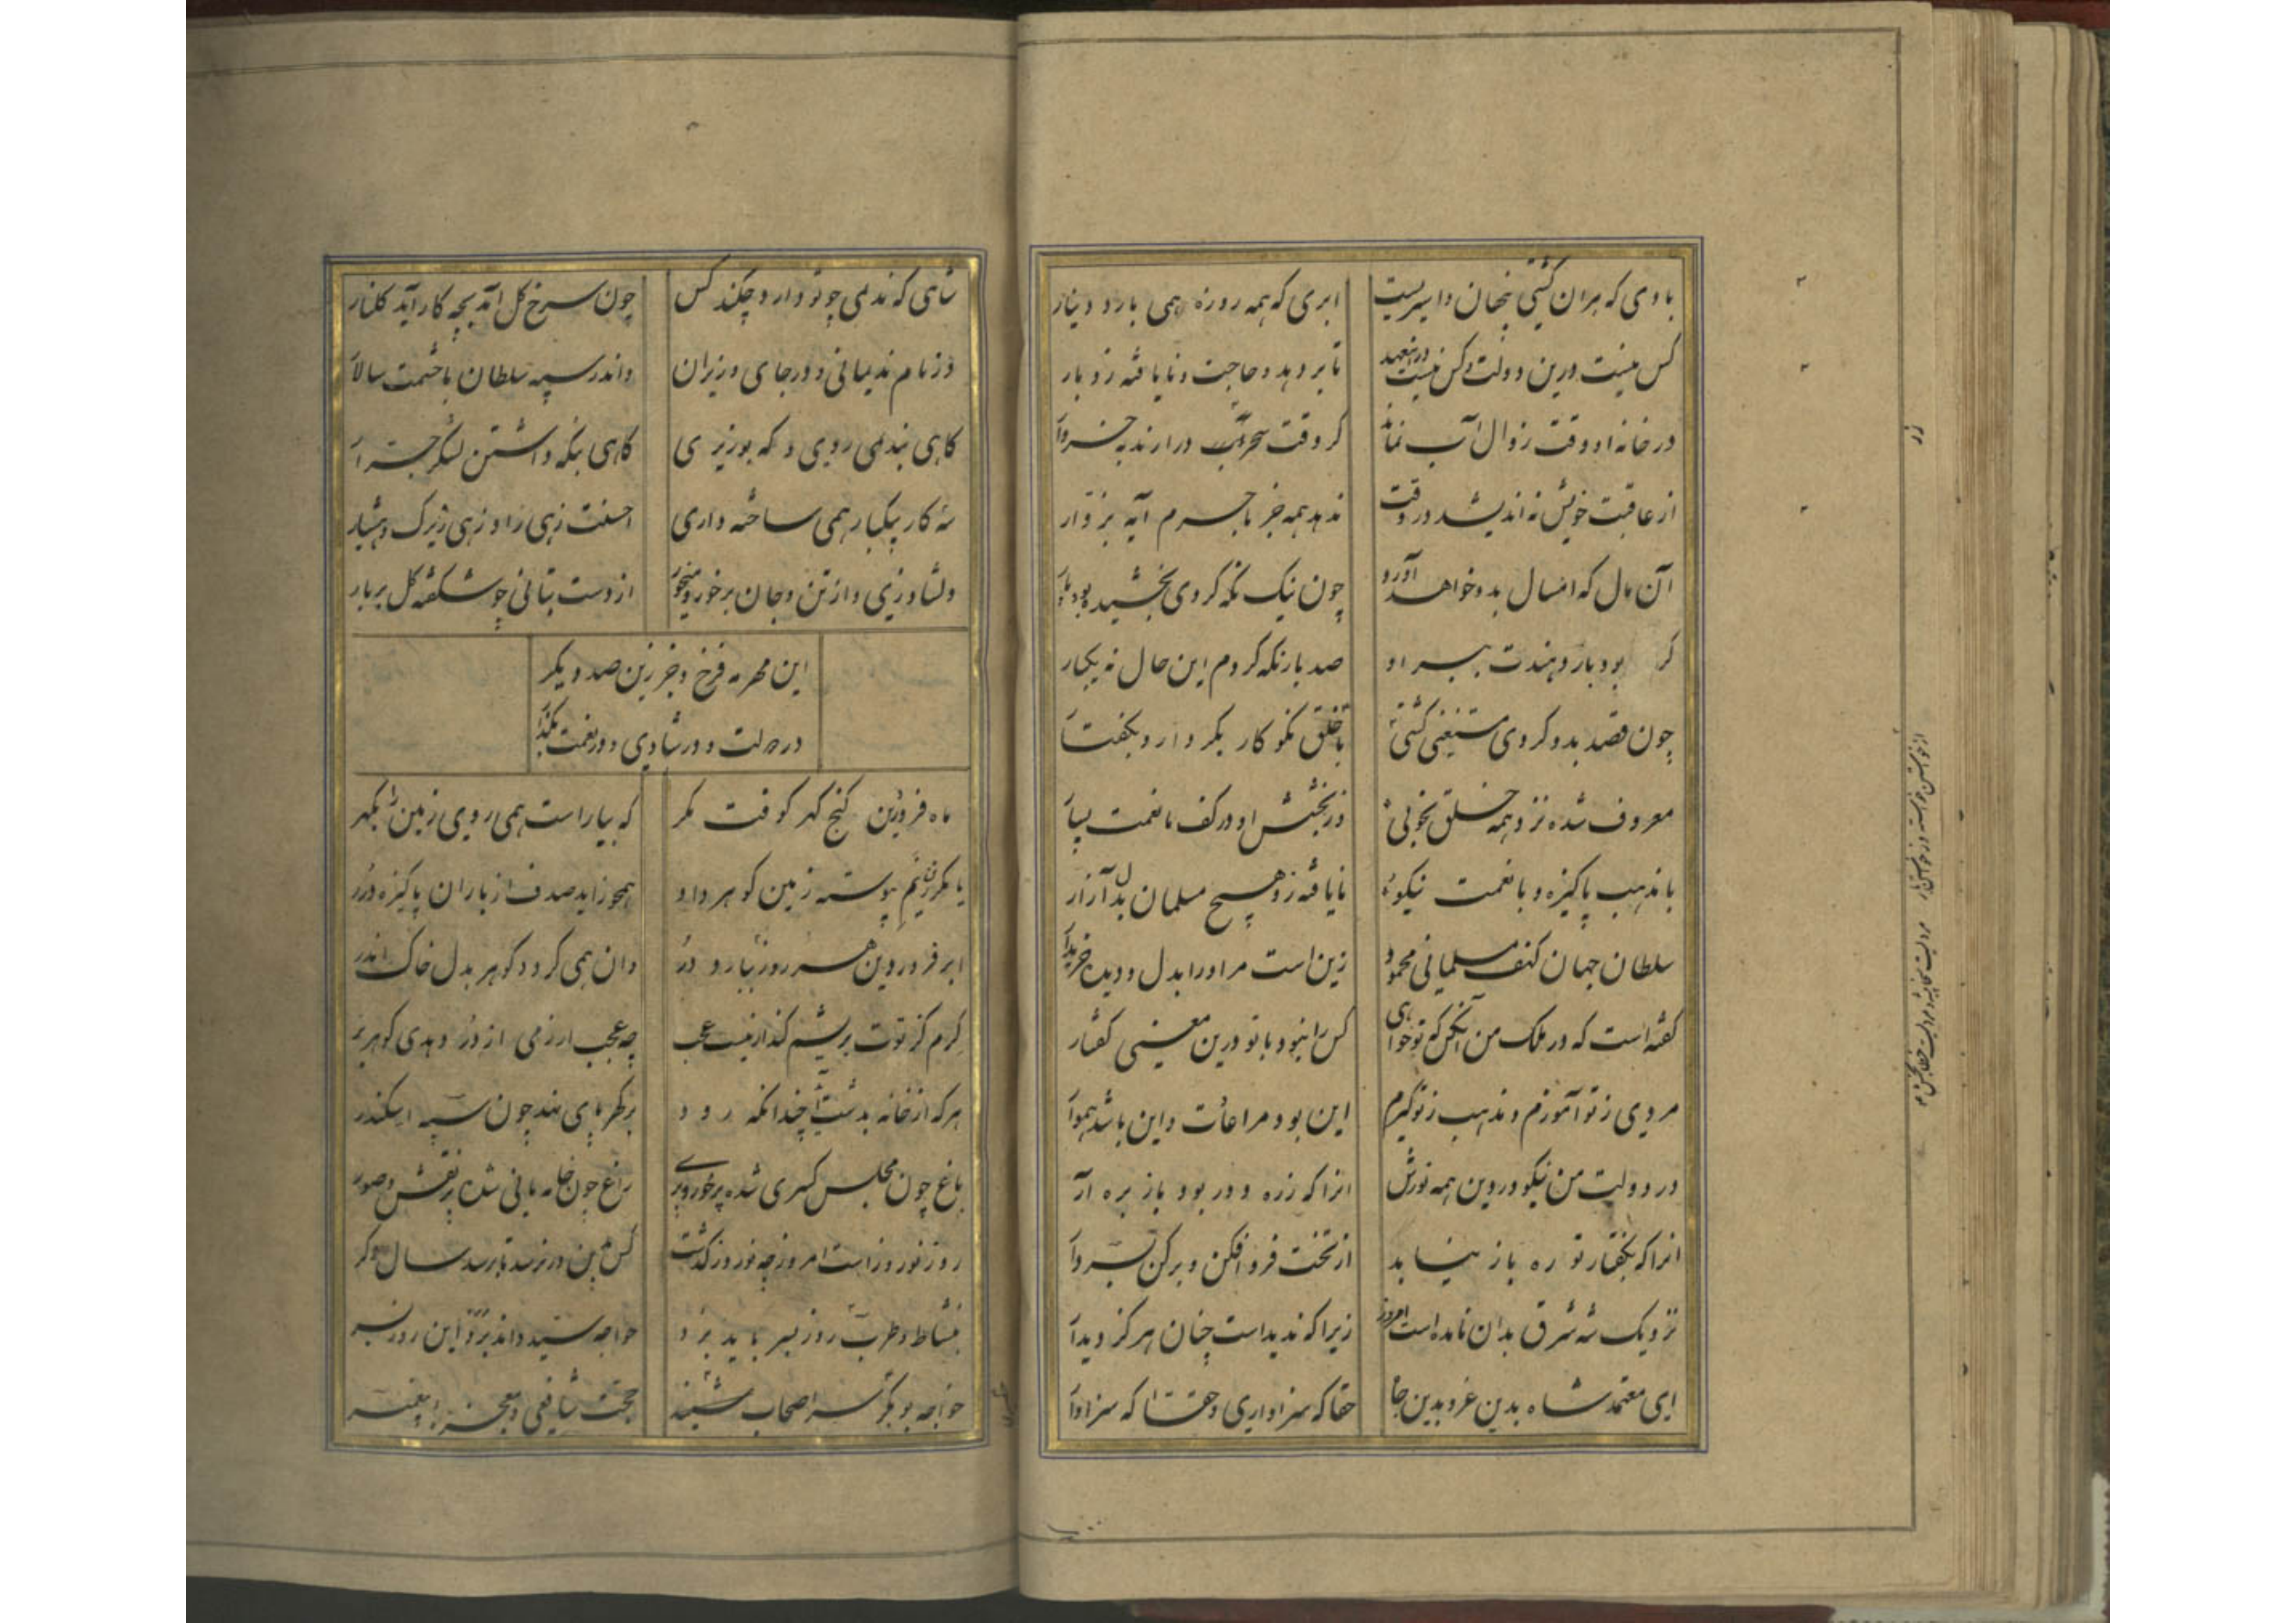 بادی که بران کشتی پنهان دانیریست ابری که همه روزه همی بارد دینار
کس نیست درین دولت و کس نیست درین عهد تا بر دهد و حاجت و نایافته زو بار
در خانه او وقت زوال آب نماند کر وقت سحر آب درارند بخروار
از عاقبت خویش نه اندیشد در وقت ندهد همه جز با جرم آیه بزوار
آن مال که امسال بدو خواهد آورد چون نیک نکه کردی بخشیده بود پار
کر بود بار دهندت بسر او صد بار نکه کردم این حال نه یکبار
چون قصد بدو کردی مستغنی کشتی با خلق نکو کار بکردار و بکفتار
معروف شده نزد همه خلق بخوبی وز بخشش او در کف ما نعمت بسیار
با مذهب پاکیزه و با نعمت نیکو نایافته زو هیچ مسلمان بدل آزار
سلطان جهان کنف مسلمانی محمود زین است مر او را بدل و دیده خریدار
کفته است که در ملک من آن کن که تو خواهی کس را نبود با تو درین معنی کفتار
مردی ز تو آموزم و مذهب ز تو کیرم این بود مراعات و این باشد هموار
در دولت من نیکو در دین همه نورش انرا که ز ره دور بود باز بره آر
انرا که بکفتار تو ره باز نیابد از تخت فرو افکن و بر کن بسر دار
نزدیک شه شرق بدان نامده است امروز زیرا که ندیده است چنان هرکز دیدار
ای معتمد شاه بدین عز و بدین جاه حقا که سزاواری و حقا که سزاوار
شاهی که ندیمی چو تو دارد چکند کس چون سرخ کل آمد بچه کار آید کلنار
در نام ندیمانی و در جای وزیران و اندر سپه سلطان با حشمت سالار
کاهی بندیمی روی و که بوزیری کاهی بنکه داشتن لشکر جرار
سه کار بیکبار همی ساخته داری احسنت زهی راد و زهی زیرک و هشیار
دلشاد زی و از تن و جان برخور و میخور از دست بتانی چو شکفته کل بر بار
این مهر مه فرخ و جز زین صد دیکر
در دولت و در شادی و در نعمت بکذار
ماه فروردین کنج کهر کوفت مکر که بیاراست همی روی زمین را بکهر
یا مکر زانم پیوسته زمین کوهر داد همچو زاید صدف از باران پاکیزه درر
ابر فروردین هر روز ببارد در وان همی کردد کوهر بدل خاک اندر
کرم کز توت بریشم کند از نیست عجب چه عجب ار زمی از در دهدی کوهر بر
هر که از خانه بدشت آید چندانکه رود بر کهر پای نهد چون سپه اسکندر
باغ چون مجلس کسری شده پر حور و پری راغ چون خامه مانی شده پر نقش و صور
روز نوروز است امروز چو نوروز کذشت کس بدین در نرسد تا برسد سال دکر
بنشاط و طرب این روز بسر باید برد خواجه سید داند برد این روز بسر
خواجه بوبکر سر اصحاب شفیع حجت شافعی و معجز پیغمبر